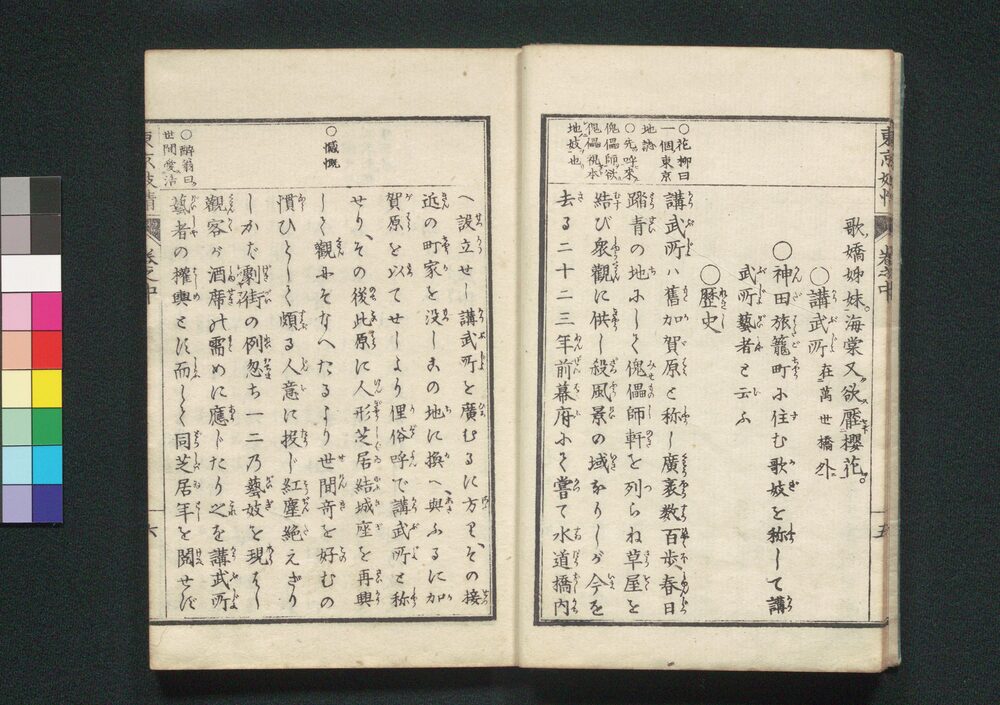 歌嬌姊妹。海棠又欲壓櫻花。
○講武所 在萬世橋外
○神田旅籠町に住む歌妓を称して講
武所藝者と云ふ
○歴史
講武所ハ舊加賀原と称し廣袤数百歩、春日
踏青の地にして傀儡師軒を列らね草屋を
結び衆觀に供し殺風景の域なりしが今を
去る二十二三年前幕府にて嘗て水道橋内
○花柳曰
一個東京
地誌
○先呼來
傀儡師欲
傀儡視本
地妓也
東京妓情
巻之中
五
へ設立せし講武所を廣むるに方り、その接
近の町家を没しこの地に換へ與ふるに加
賀原を以てせしより俚俗呼で講武所と称
せり、その後此原に人形芝居結城座を再興
して觀にそなへたるより世間奇を好むの
慣ひとして頗る人意に投じ紅塵絶えざり
しかだ劇街の例忽ち一二乃藝妓を現はし
觀客が酒席の需めに應じたり之を講武所
藝者の權輿とす而して同芝居年を閲せず
○慨慨
○醉翁曰
世間愛活
東京妓情
巻之中
六